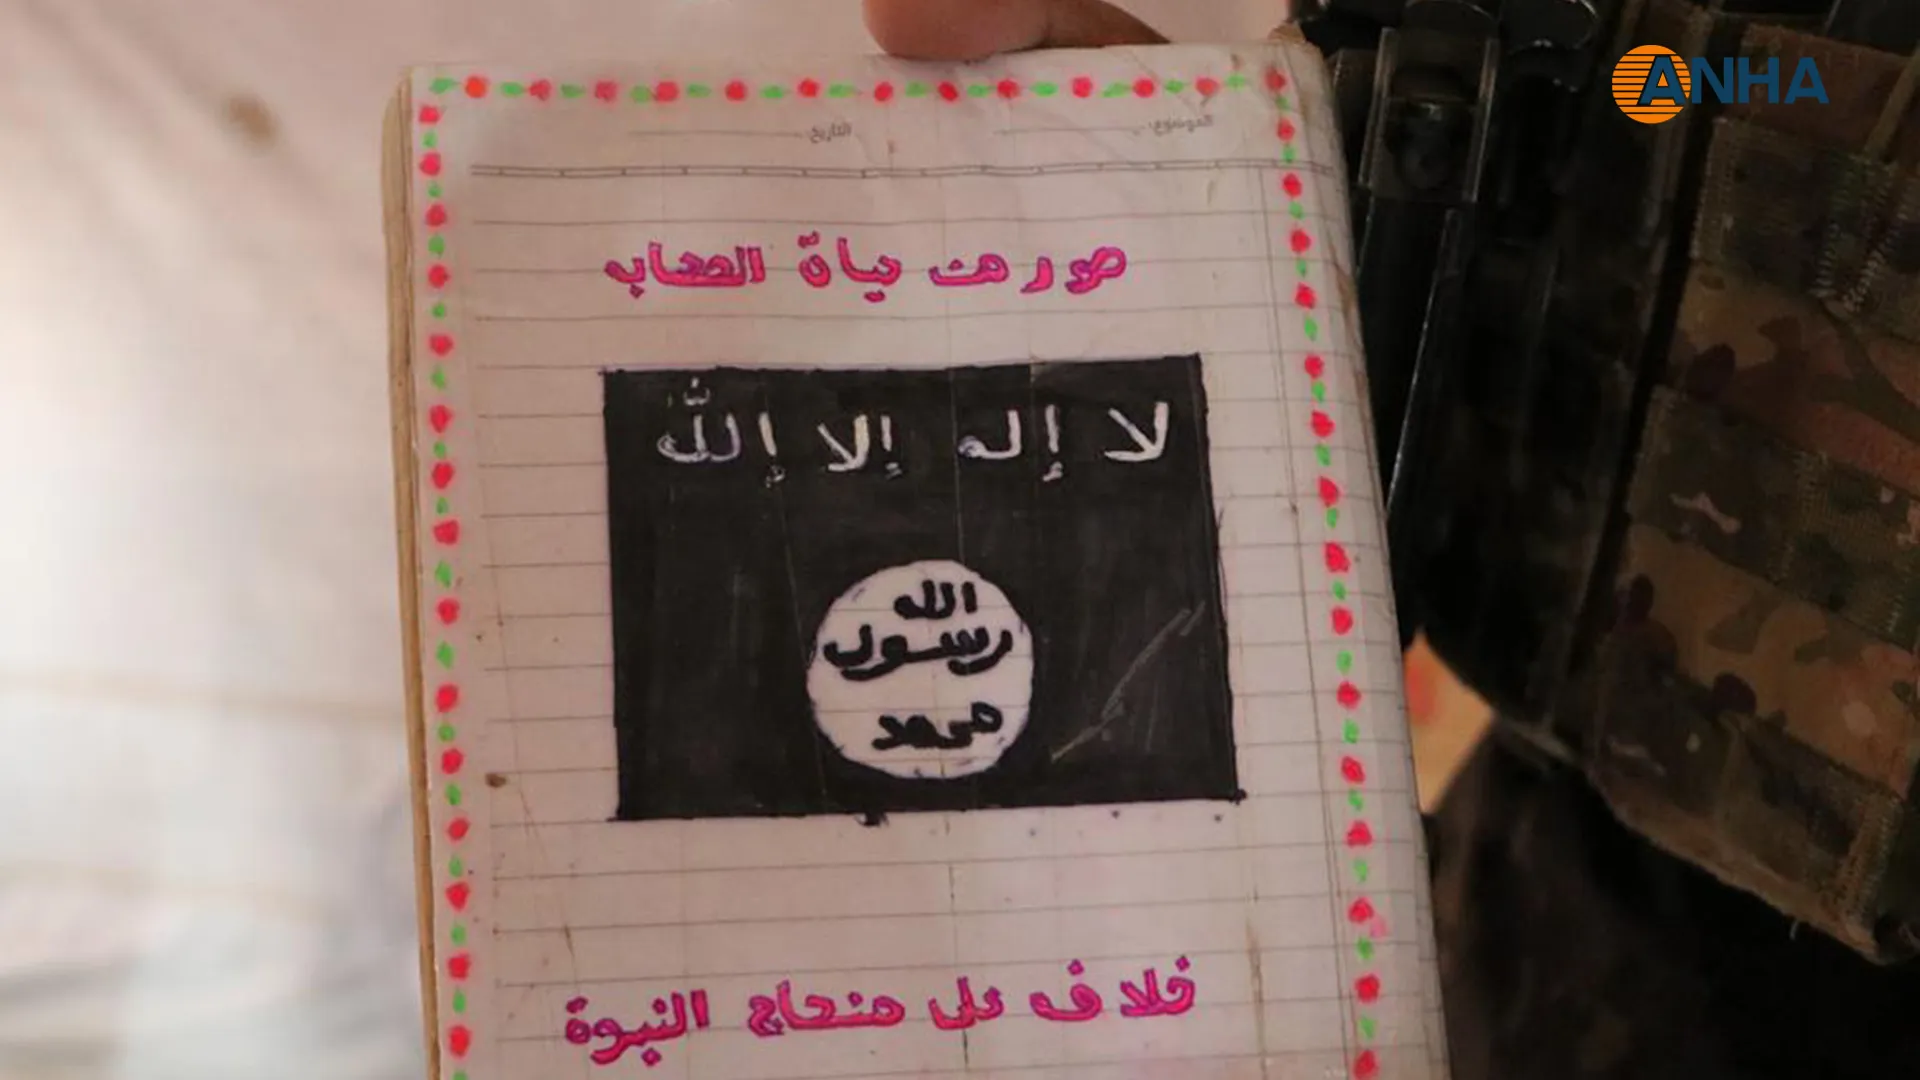 ANHA
الموضوع التاريخ
صور من حياة الصحاب
لا إله إلا إلله
الله
رسول
محمد
خلافه على منهاج النبوة